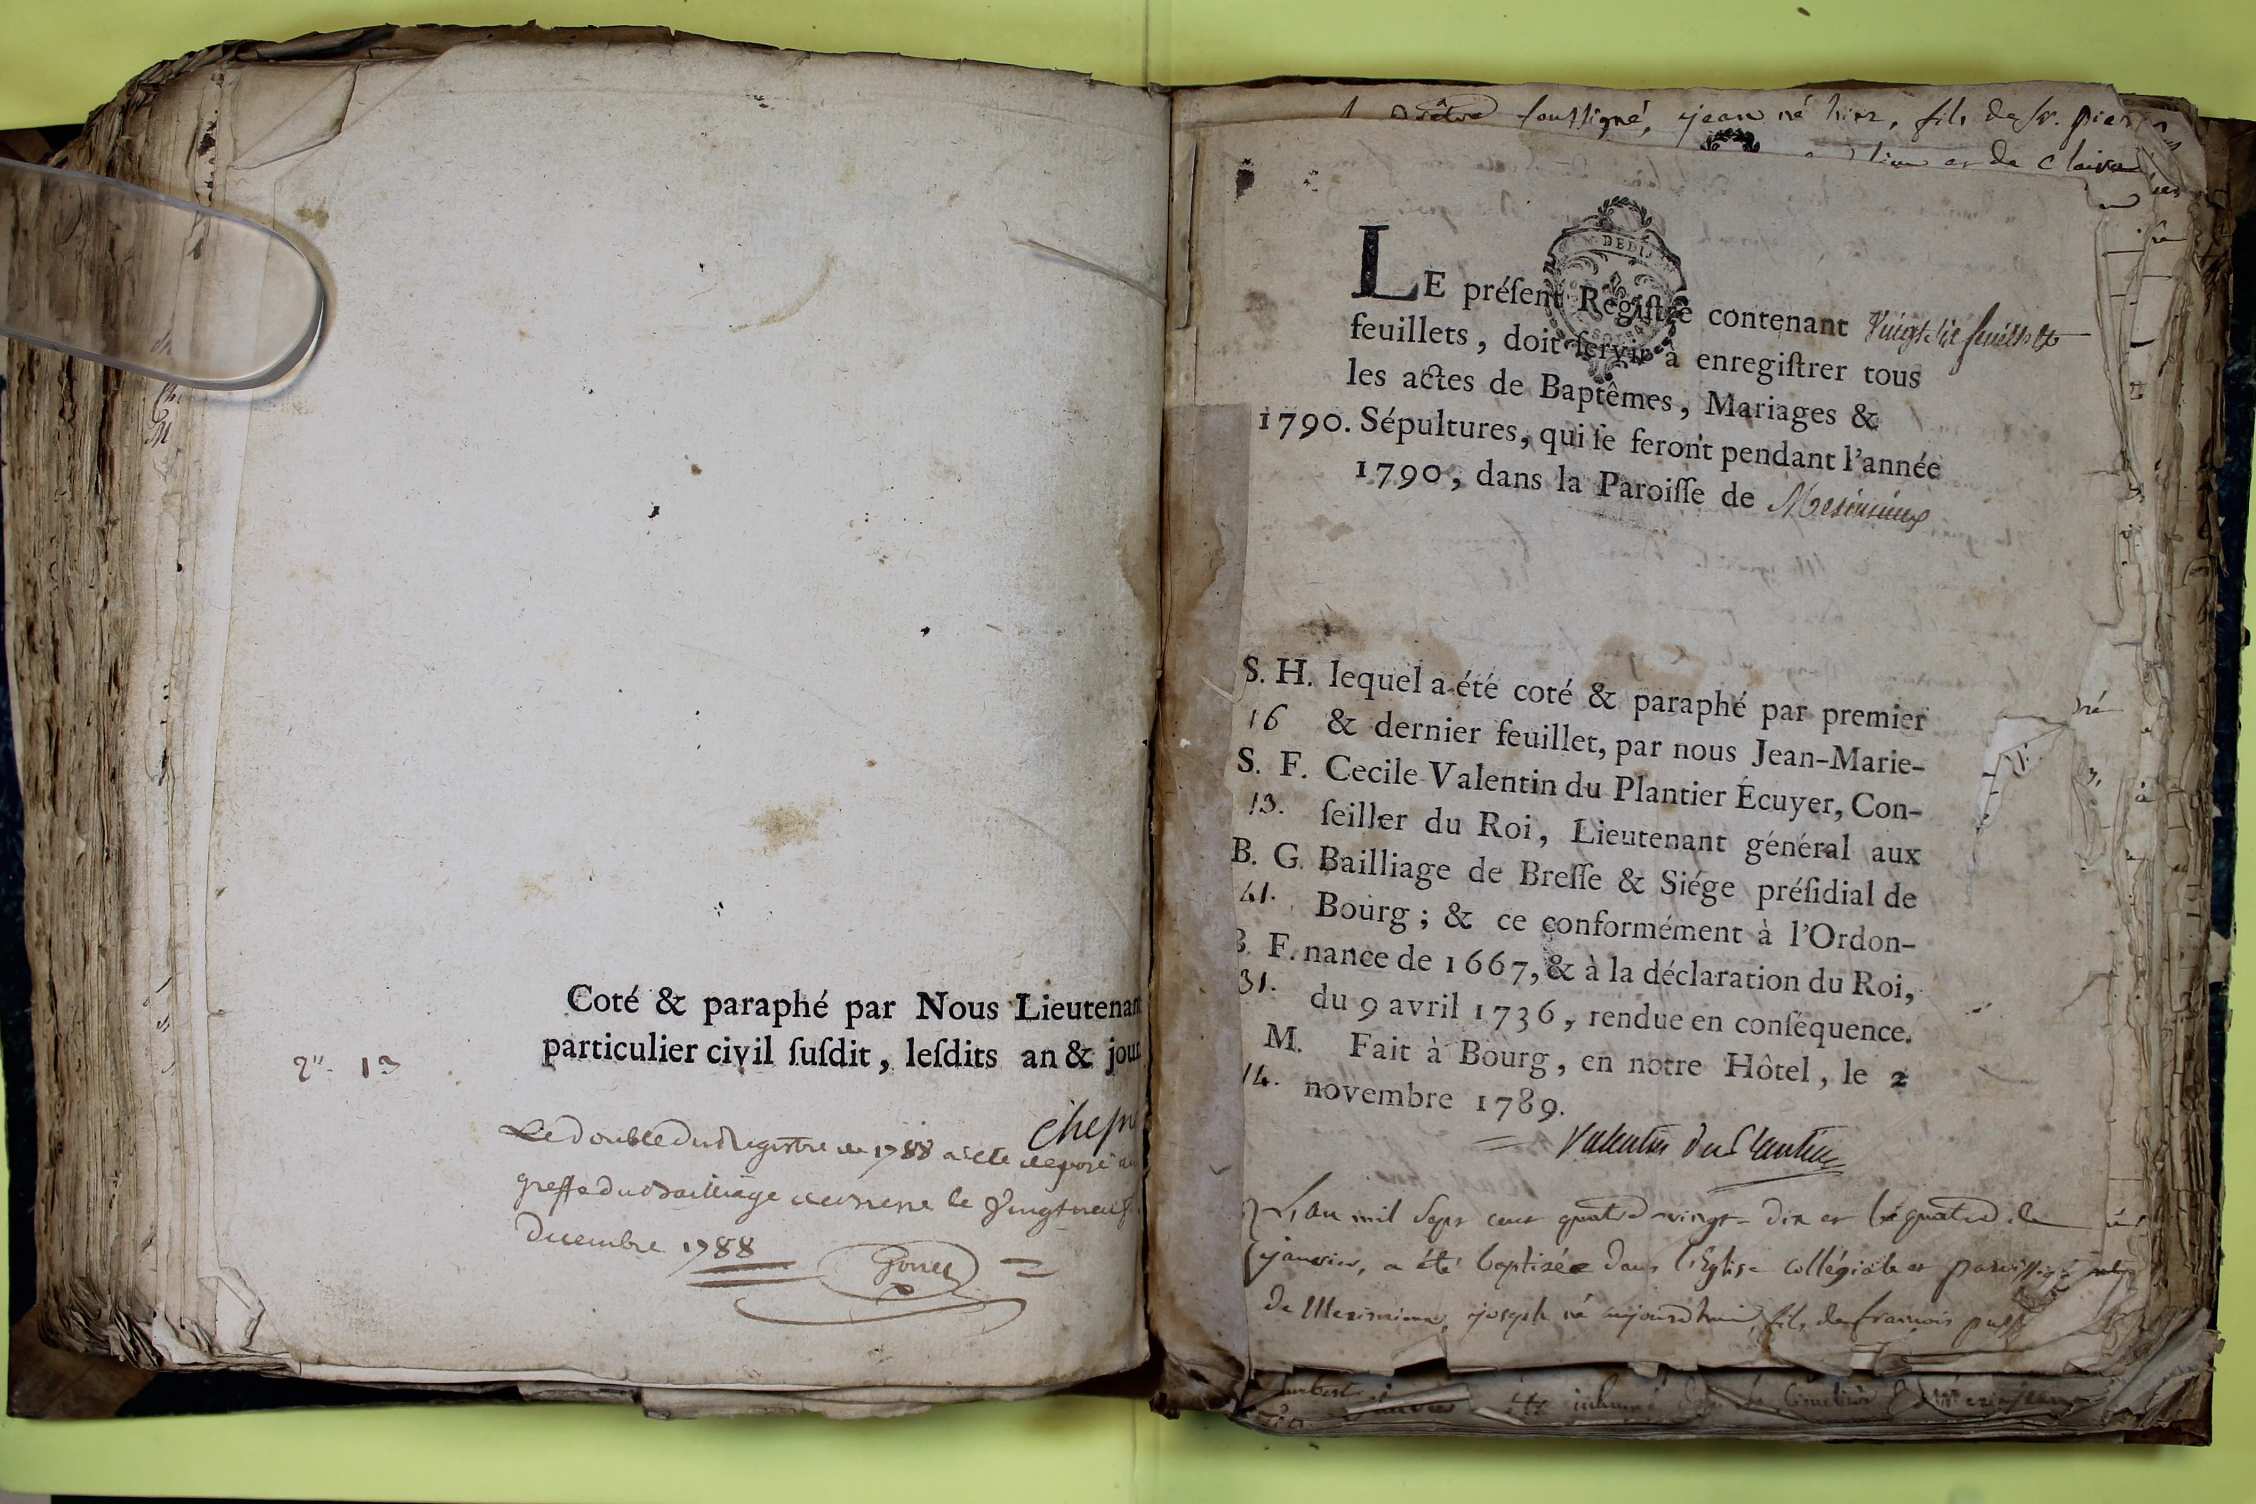 Coté & paraphé par Nous Lieutenant
particulier civil ſuſdit, leſdits an & jour
Le double du Registre de 1788 a été déposé au
greffe du Bailliage de Bresse le vingt neuf
décembre 1788
soussigné, jean né hier, fils de Sr. pierre
et de claire
LE préſent Regiſtre contenant Vingt six feuillets
feuillets, doit ſervir à enregiſtrer tous
les actes de Baptêmes, Mariages &
1790. Sépultures, qui ſe feront pendant l'année
1790, dans la Paroiſſe de Meximieux
S. H. lequel a été coté & paraphé par premier
16 & dernier feuillet, par nous Jean-Marie-
S. F. Cecile Valentin du Plantier Écuyer, Con-
13. ſeiller du Roi, Lieutenant général aux
B. G. Bailliage de Breſſe & Siége préſidial de
41. Bourg; & ce conformément à l'Ordon-
B. F. nance de 1667, & à la déclaration du Roi,
31. du 9 avril 1736, rendue en conſéquence.
M. Fait à Bourg, en notre Hôtel, le 2
14. novembre 1789.
Valentin du Plantier
L'an mil sept cent quatre vingt dix et le quatre de
janvier, a été baptisé dans l'Eglise collégiale et paroissiale
de Meximieux, joseph né aujourd'hui, fils de francois
été inhumé dans le cimetière de Meximieux